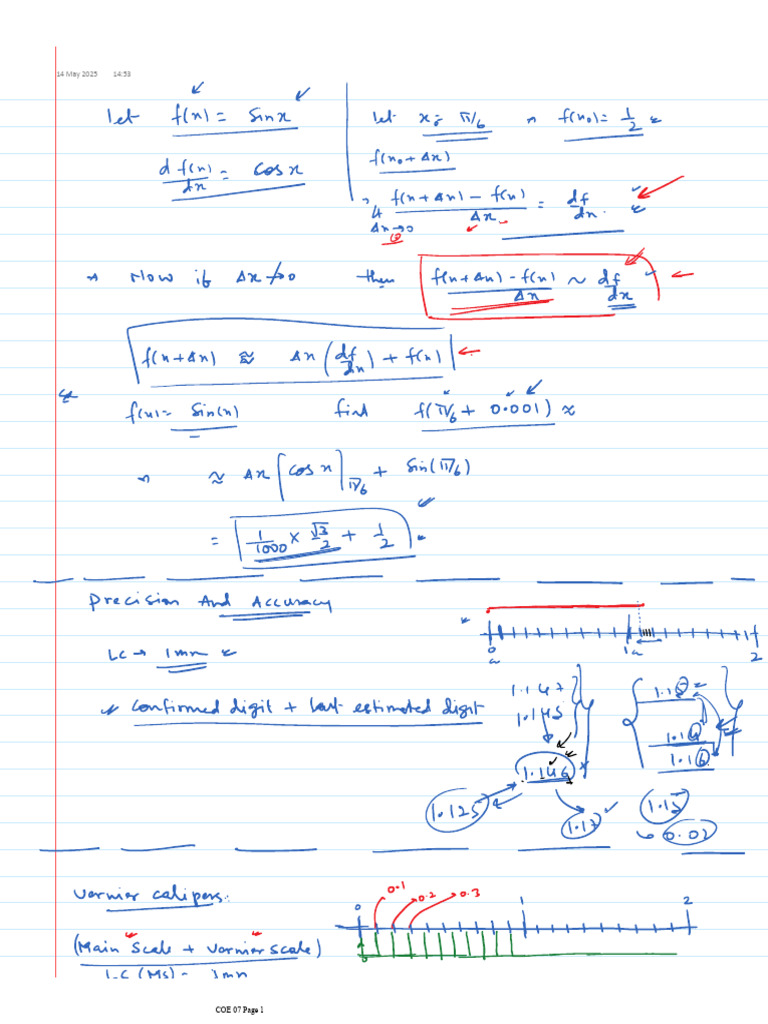 14 May 2025 14:53
let f(x) = sin x
d f(x)/dx = cos x
let x = π/6 ⇒ f(x₀) = 1/2
f(x₀ + Δx)
Lt Δx→0 f(x + Δx) − f(x) / Δx = df/dx.
⇒ Now if Δx ↛ 0 then f(x + Δx) − f(x) / Δx ~ df/dx
f(x + Δx) ≈ Δx (df/dx) + f(x)
f(x) = sin(x) find f(π/6 + 0.001) ≈
⇒ ≈ Δx [cos x]π/6 + sin(π/6)
= 1/1000 × √3/2 + 1/2
Precision And Accuracy
0 1 2
LC → 1mm
confirmed digit + last estimated digit
1.147
1.145
1.146
1.125
1.17
1.14
1.16
1.15
0.02
Vernier calipers:
0 0.1 0.2 0.3 1 2
(Main Scale + Vernier scale)
0
LC (MS) = 1mm
COE 07 Page 1